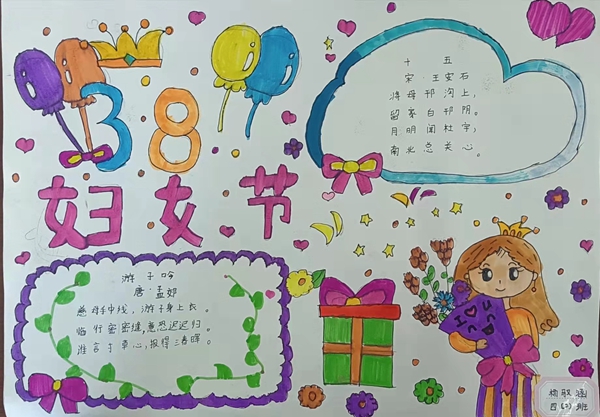 38
妇女节
十五
宋·王安石
将母邗沟上,
留家白邗阴。
月明闻杜宇,
南北总关心。
游子吟
唐·孟郊
慈母手中线,游子身上衣。
临行密密缝,意恐迟迟归。
谁言寸草心,报得三春晖。
涵
四 班